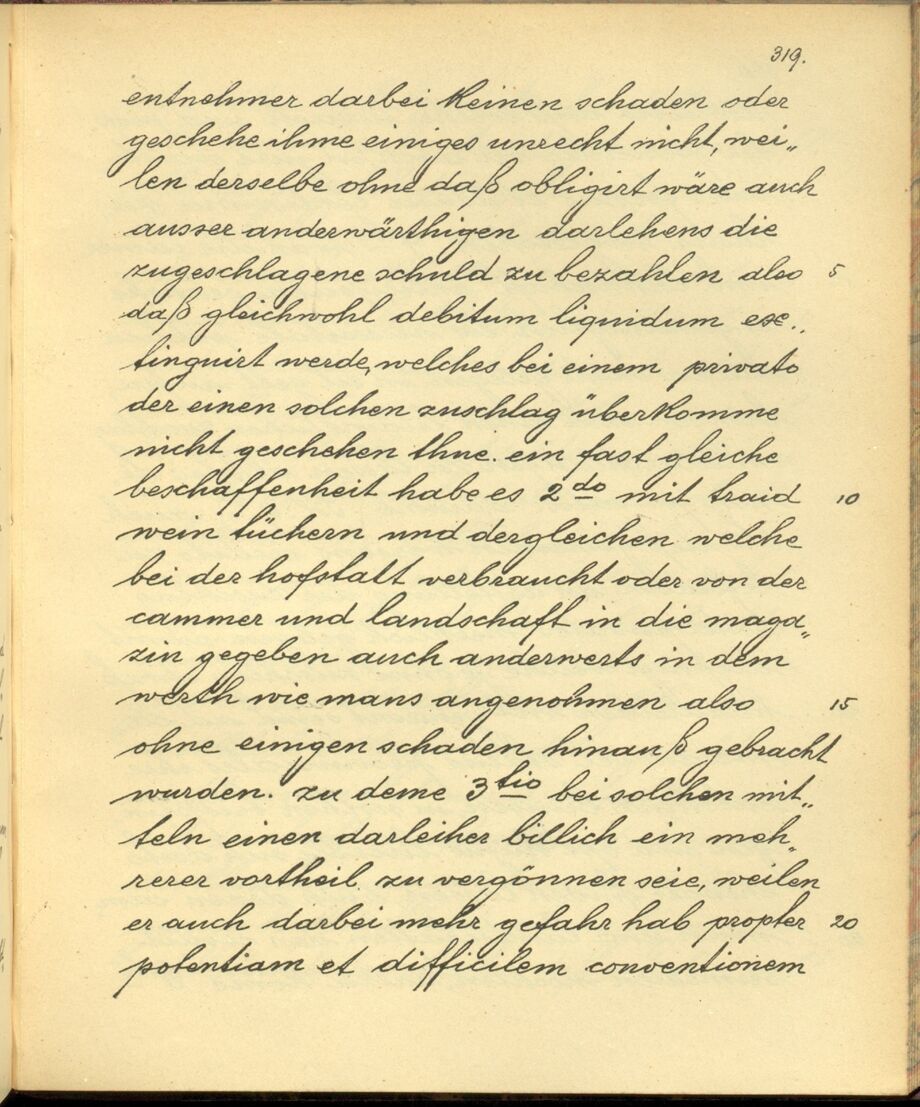 319.
entnehmer darbei keinen schaden oder
geschehe ihme einiges unrecht nicht, wei„
len derselbe ohne daß obligirt wäre auch
ausser anderwärthigen darlehens die
zugeschlagene schuld zu bezahlen also 5
daß gleichwohl debitum liquidum ex„
tinguirt werde, welches bei einem privato
der einen solchen zuschlag überkomme
nicht geschehen thue. ein fast gleiche
beschaffenheit habe es 2do mit traid 10
wein tüchern und dergleichen welche
bei der hofstatt verbraucht oder von der
cammer und landschaft in die maga„
zin gegeben auch anderwerts in dem
werth wie mans angenohmen also 15
ohne einigen schaden hinauß gebracht
wurden. zu deme 3tio bei solchen mit„
teln einen darleiher billich ein meh„
rerer vortheil zu vergönnen seie, weilen
er auch darbei mehr gefahr hab propter 20
potentiam et difficilem conventionem